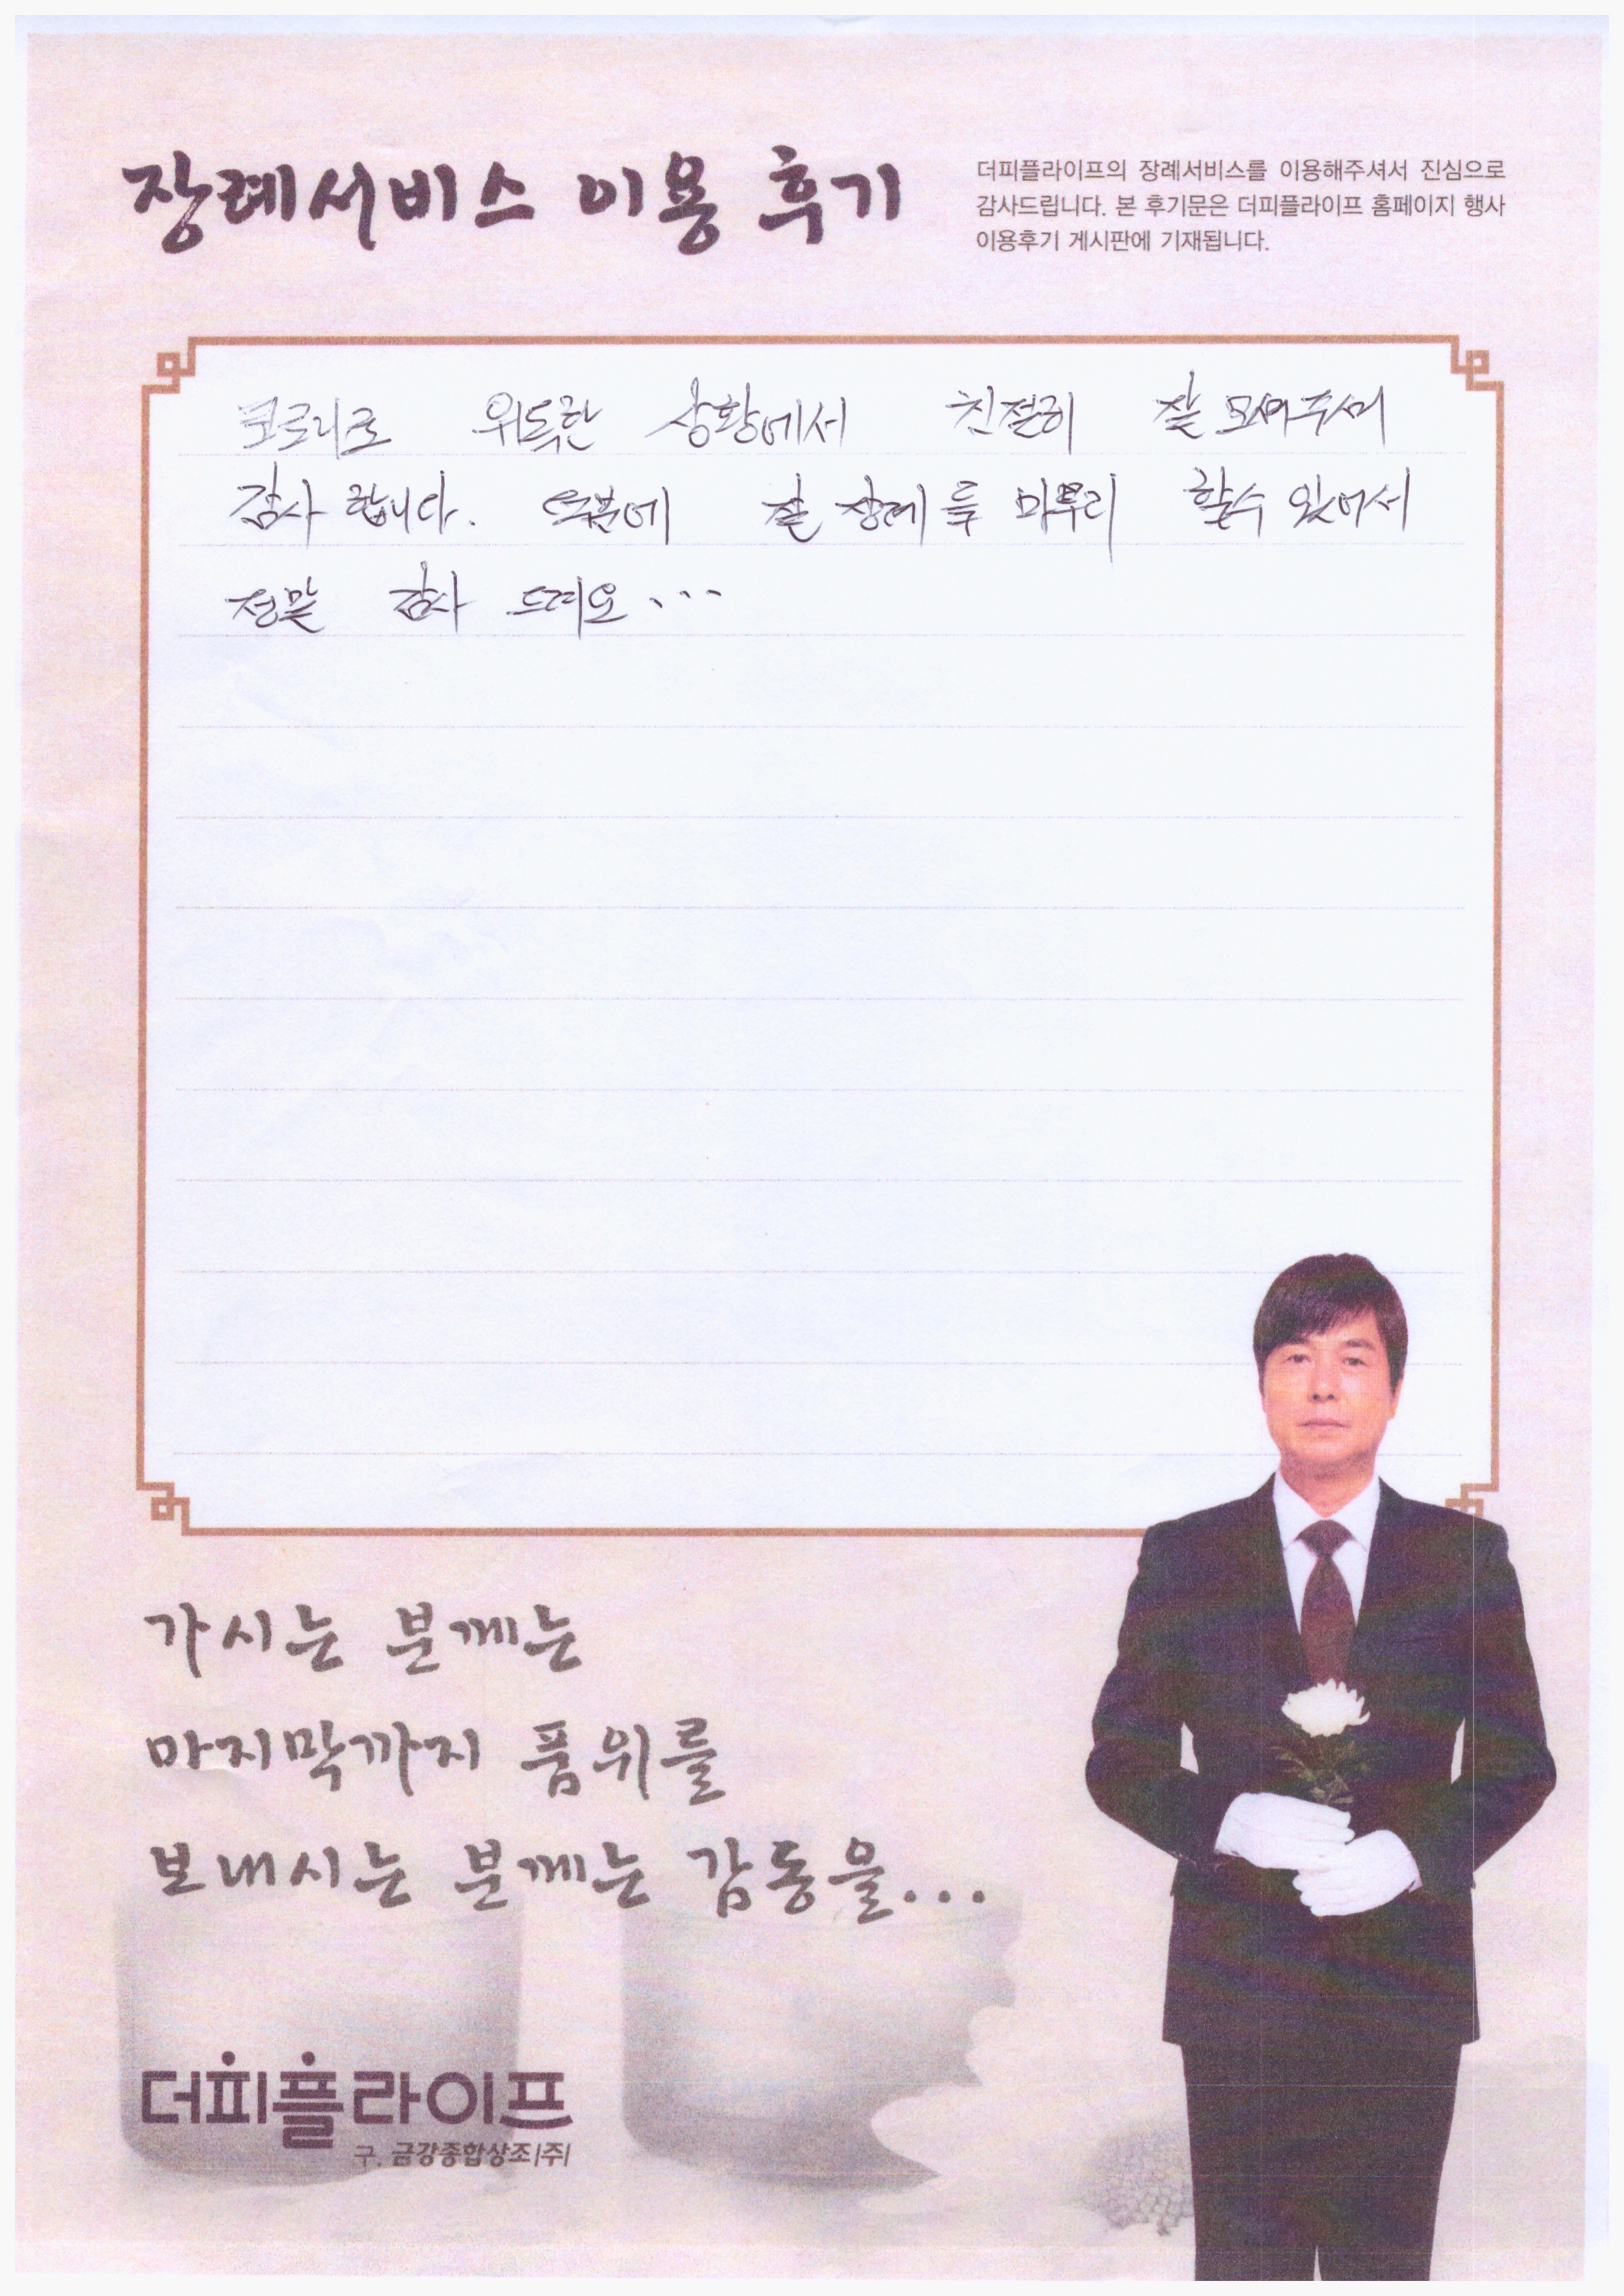 장례서비스 이용 후기
더피플라이프의 장례서비스를 이용해주셔서 진심으로
감사드립니다. 본 후기문은 더피플라이프 홈페이지 행사
이용후기 게시판에 기재됩니다.
위독한 상황에서 친절히 잘
감사 합니다. 덕분에 잘 장례를 마무리 할수 있어서
정말 감사 드려요...
가시는 분께는
마지막까지 품위를
보내시는 분께는 감동을...
더피플라이프
구. 금강종합상조(주)